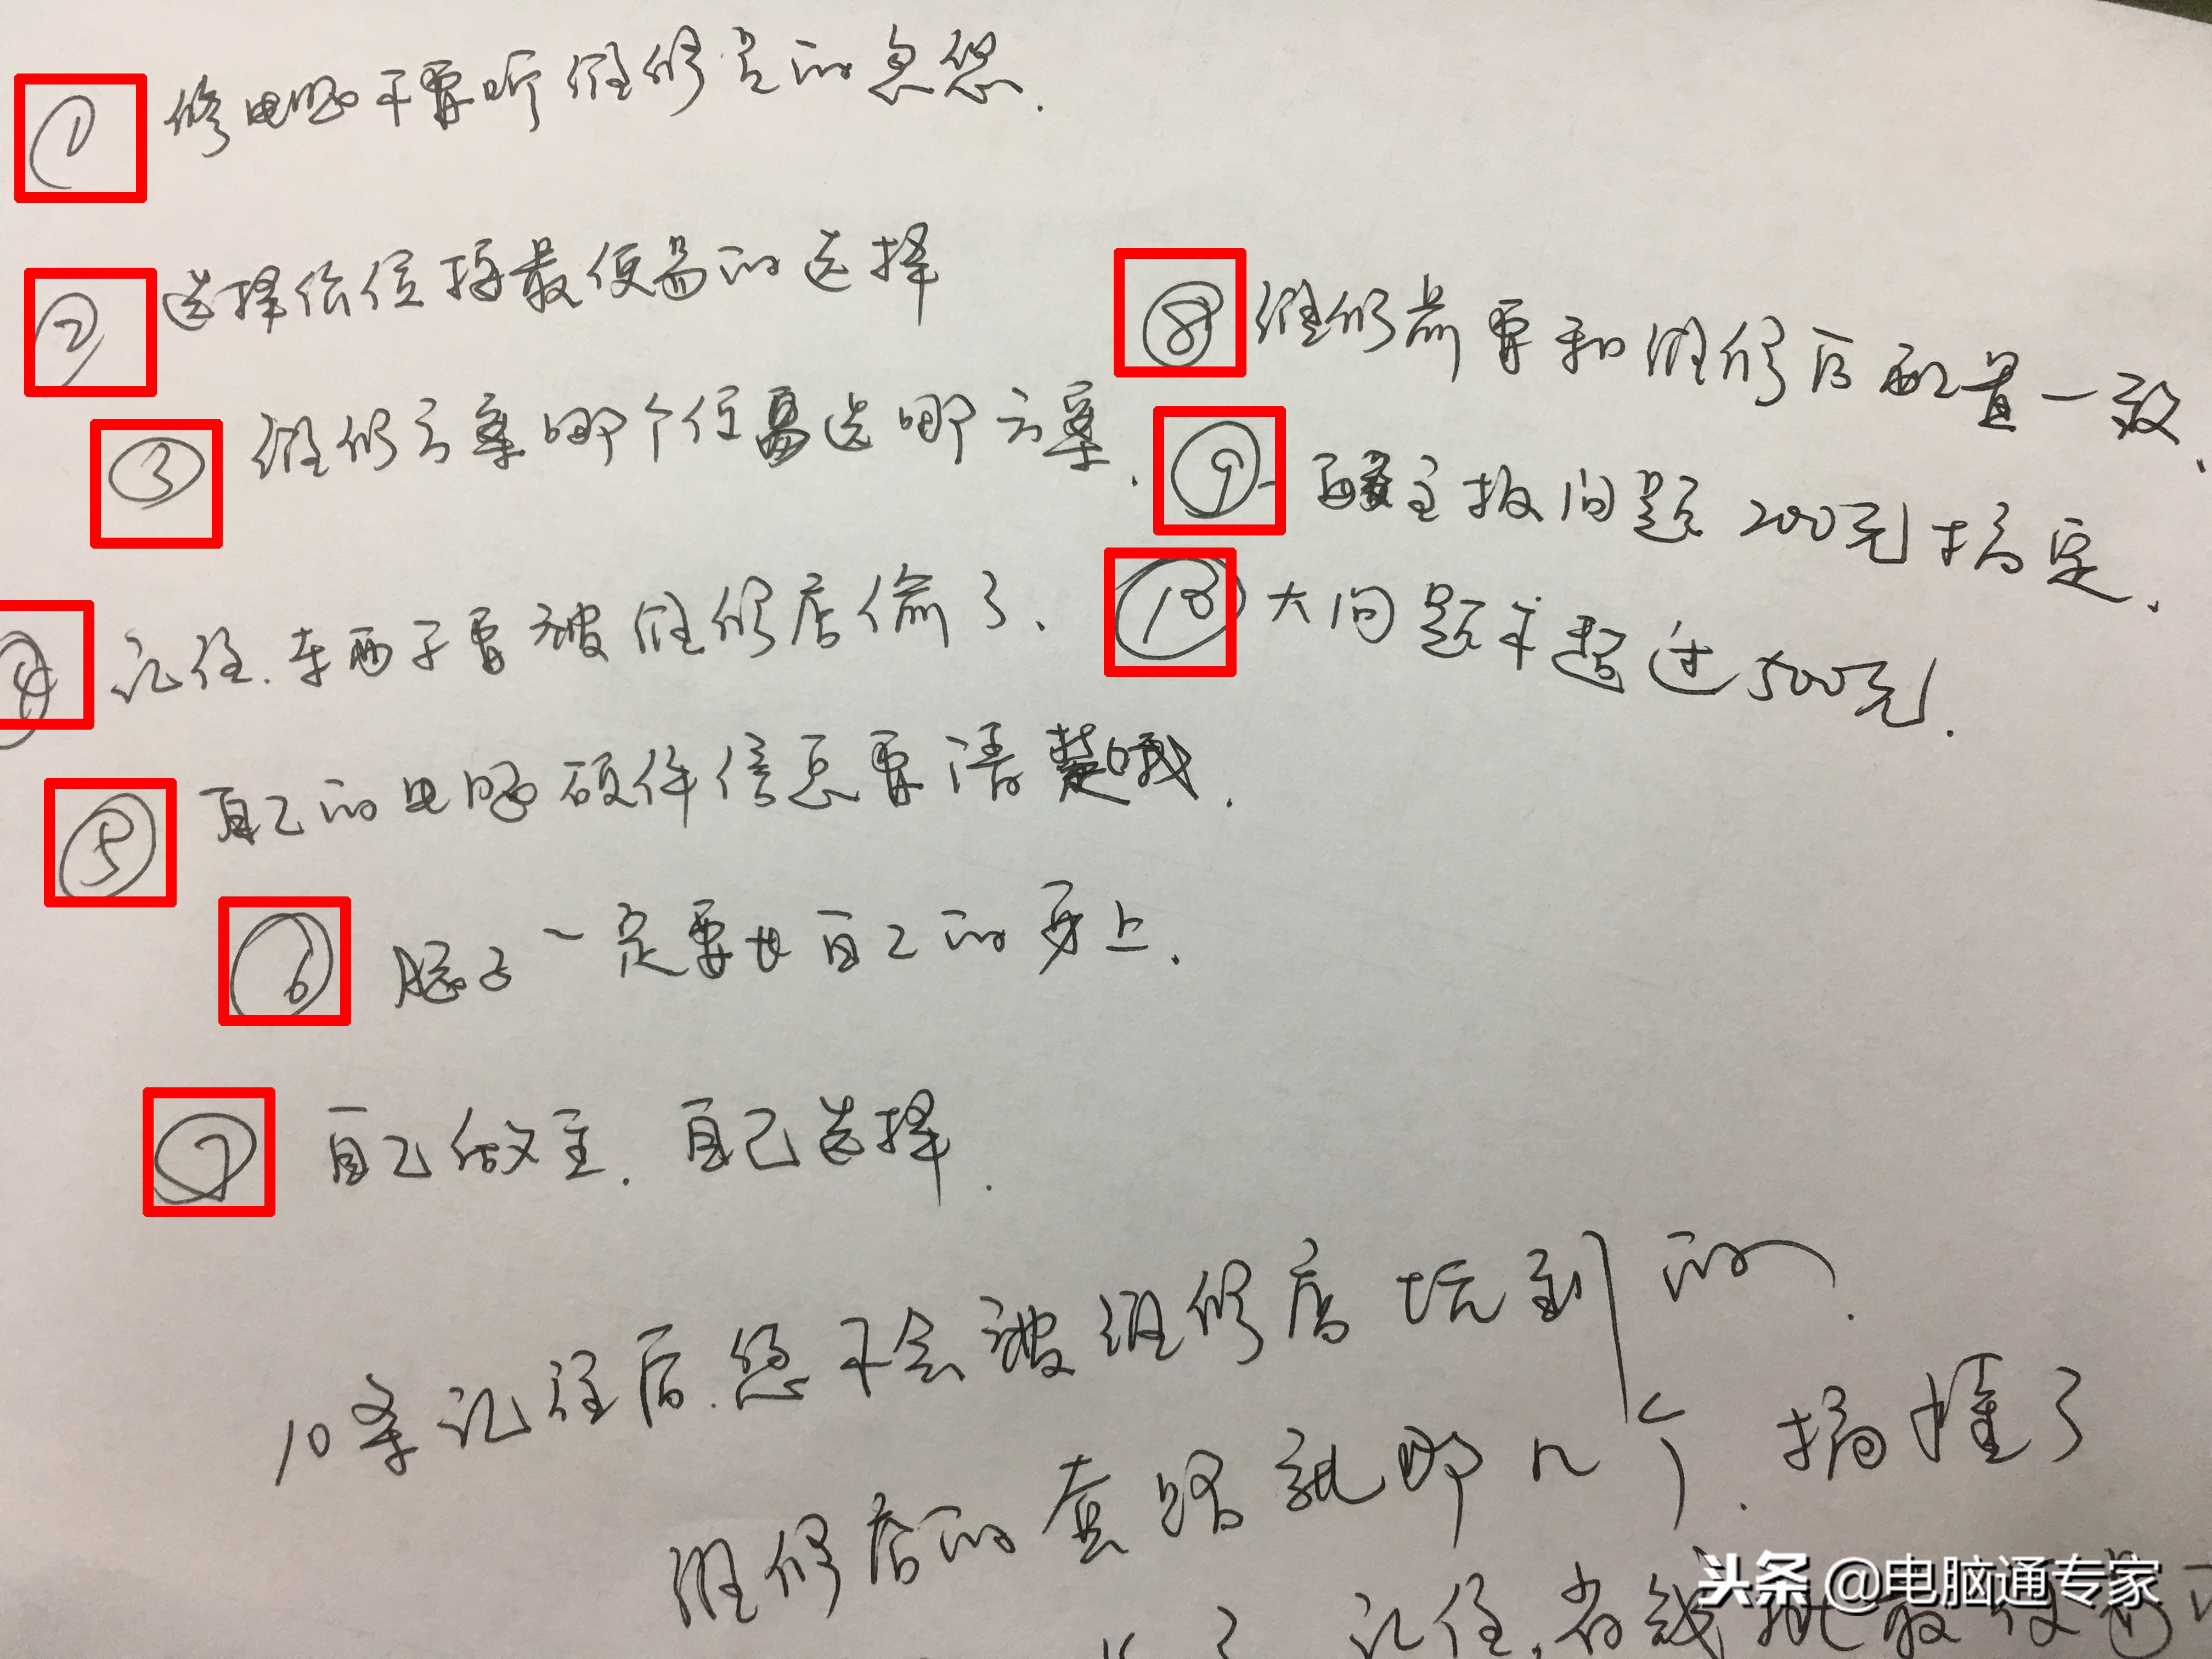 ① 修电脑不要听维修员的忽悠.
② 选择价位挑最便宜的选择
③ 维修方案哪个便宜选哪方案.
④ 记住.东西不要被维修店偷了.
⑤ 自己的电脑硬件信息要清楚哦.
⑥ 脑子一定要长自己的身上.
⑦ 自己做主.自己选择.
⑧ 维修前要和维修后配置一致.
⑨ 主板问题200元搞定.
⑩ 大问题不超过500元.
10条记住后.您不会被维修店坑到的.
维修店的套路就那几个.搞懂了
记住.省钱挑最便宜
头条 @电脑通专家